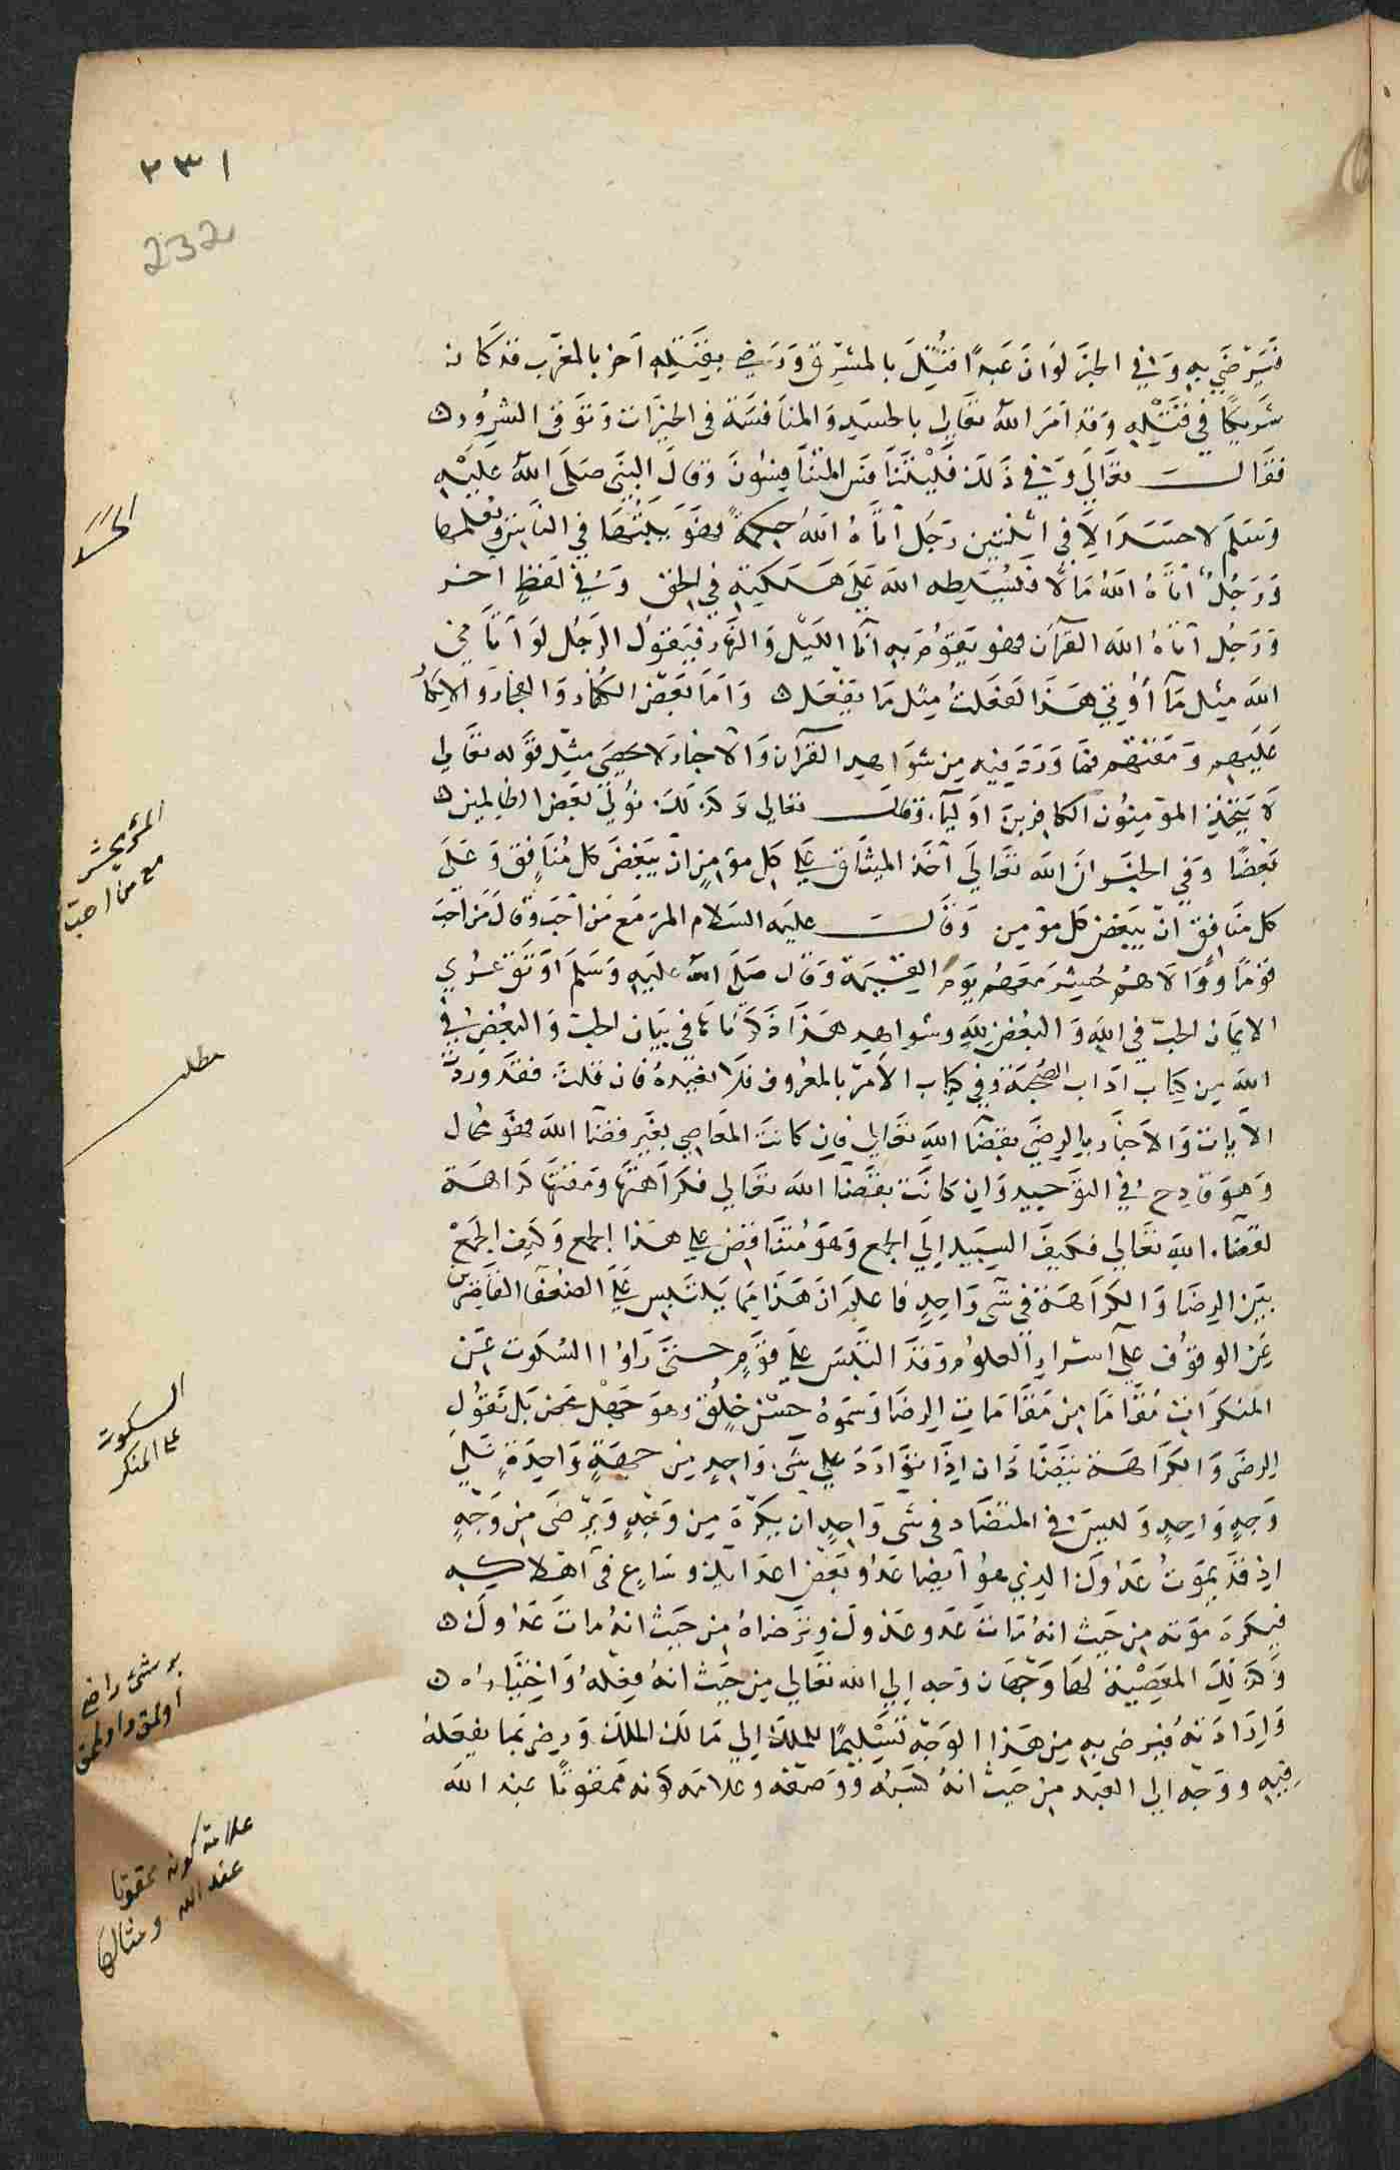 ٢٣١
232
فيرضى به وفي الخبر لو ان عبدا قتل بالمشرق ورضي بقتله آخر بالمغرب قد كان
شريكا في قتله وقد امر الله تعالى بالحسد والمنافسة في الخيرات وتوقى الشرور
فقال تعالى وفي ذلك فليتنافس المتنافسون وقال النبي صلى الله عليه
وسلم لا حسد الا في اثنتين رجل آتاه الله حكمة فهو يبثها في الناس ويعلمها
ورجل آتاه الله مالا فسلطه الله على هلكته في الحق وفي لفظ آخر
ورجل آتاه الله القرآن فهو يقوم به آنا الليل والنهار فيقول الرجل لو آتاني
الله مثل ما أوتي هذا لفعلت مثل ما يفعل واما بغض الكفار والفجار والانكار
عليهم ومقتهم فما ورد فيه من شواهد القرآن والاخبار لا يحصى مثل قوله تعالى
لا يتخذ المؤمنون الكافرين اوليآء وقال تعالى وكذلك نولي بعض الظالمين
بعضا وفي الخبر ان الله تعالى أخذ الميثاق على كل مؤمن ان يبغض كل منافق وعلى
كل منافق ان يبغض كل مؤمن وقال عليه السلام المرء مع من أحب وقال من أحب
قوما ووالاهم حشر معهم يوم القيمة وقال صلى الله عليه وسلم أوثق عرى
الايمان الحب في الله والبغض لله وشواهد هذا ذكرناها في بيان الحب والبغض في
الله من كتاب آداب الصحبة وفي كتاب الامر بالمعروف فلا نعيده فان قلت فقد وردت
الآيات والاخبار بالرضى بقضآ الله تعالى فان كانت المعاصي بغير قضآ الله فهو محال
وهو قادح في التوحيد وان كانت بقضآ الله تعالى فكراهتها ومقتها كراهة
لقضآء الله تعالى فكيف السبيل الى الجمع وهو متناقض على هذا الجمع وكيف الجمع
بين الرضا والكراهة في شى واحد فاعلم ان هذا مما يلتبس على الضعفآ القاصرين
عن الوقوف على أسرار العلوم وقد التبس على قوم حتى رأوا السكوت عن
المنكرات مقاما من مقامات الرضا وسموه حسن خلق وهو جهل محض بل نقول
الرضى والكراهة يتضادان اذا تواردا على شى واحد من جهة واحدة على
وجه واحد وليس في المتضاد في شى واحد ان يكره من وجه ويرضى من وجه
اذ قد يموت عدوك الذي هو أيضا عدو بعض اعدايك وساع في اهلاكه
فيكره موته من حيث انه مات عدو عدوك وترضاه من حيث انه مات عدوك
وكذلك المعصية لها وجهان وجه الى الله تعالى من حيث انه فعله واختياره
وارادته فيرضى به من هذا الوجه تسليما للملك الى مالك الملك ورضى بما يفعله
فيه ووجه الى العبد من حيث انه كسبه ووصفه وعلامه كونه ممقوتا عند الله
الحسد
المرء يحشر
مع من احب
مطلب
السكوت
على المنكر
بر شئ راضى
اولمق واولممق
علامة كونه ممقوتا
عند الله ومثالها